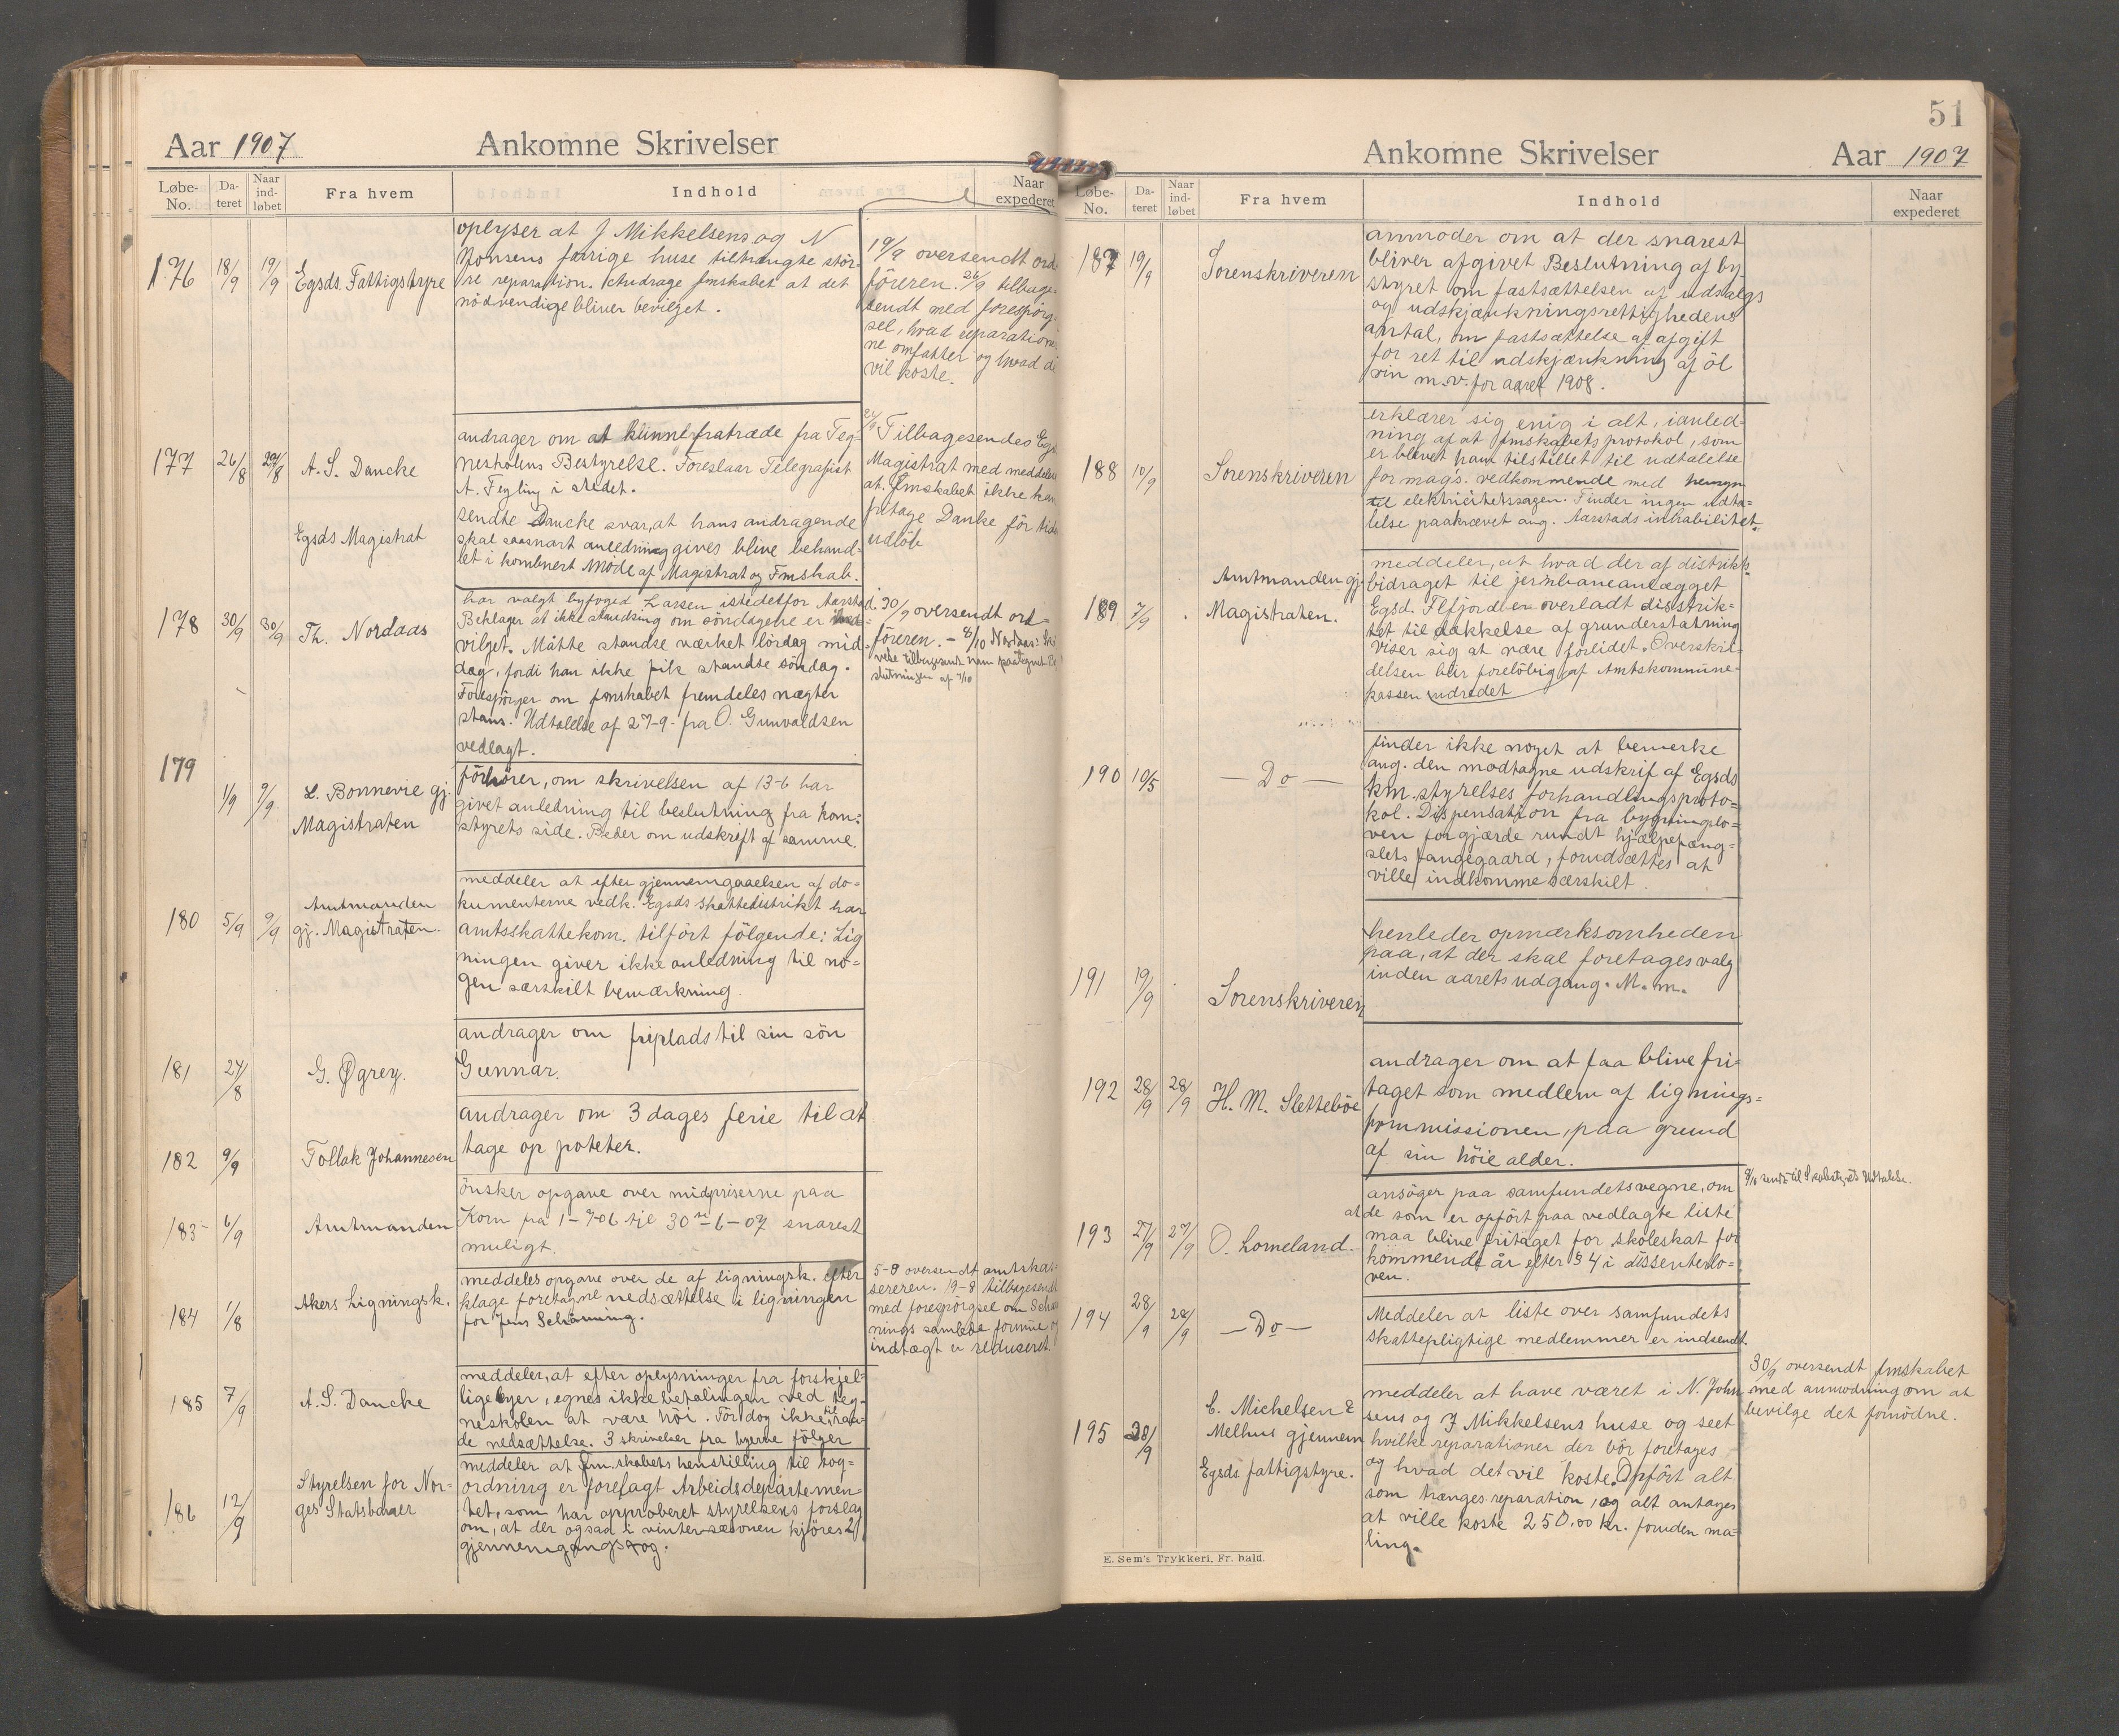 Aar 1907 Ankomne Skrivelser
Løbe-No. Da-teret Naar ind-løbet Fra hvem Indhold Naar expederet
176 18/9 19/9 Egsds. Fattigstyre
oplyser at J Mikkelsens og N
Monsens fattige huse tiltrængte stör-
re reparation. Andrage fmskabet at det
nödvendige bliver bevilget.
19/9 oversendt ord
föreren. 26/9 tilbage-
sendt med forespörg-
sel, hvad reparatione
ne omfatter og hvad de
vil koste.
177 26/8 29/8 A. S. Dancke
andrager om at kunne fratræde fra Teg-
neskolens Bestyrelse. Foreslaar Telegrafist
A. Tegling i stedet.
Egsds Magistrat
sendte Dancke svar, at hans andragende
skal saasnart anledning gives blive behand-
let i kombinert Möde af Magistrat og Fmskab.
Tilbagesendes Egs
Magistrat med meddele
at Fmskabet ikke kan
fritage Danke för tids
udlöb
178 30/9 30/9 Th. Nordaas
har valgt byfoged Larsen istedetfor Aarstad.
Beklager at ikke standsing om söndagene er ind-
vilget. Måtte standse værket lördag mid-
dag, fordi han ikke fik standse söndag.
Forespörger om fmskabet fremdeles nægter
stans. Udtalelse af 27-9- fra O. Gunvaldsen
vedlagt.
30/9 oversendt ord-
föreren. - 8/10 Nordaas' Skri
velse tilbagesendt ham paategnet Be
slutningen af 7/10
179 1/9 9/9 L. Bonnevie gj.
Magistraten
förhörer, om skrivelsen af 13-6 har
givet anledning til beslutning fra kom:
styrets side. Beder om udskrift af samme.
180 5/9 9/9 Amtmanden
gj. Magistraten.
meddeler at efter gjennemgaaelsen af do-
kumenterne vedk. Egsds skattedistrikt har
amtsskattekom. tilfört fölgende: Lig
ningen giver ikke anledning til no-
gen særskilt bemærkning.
181 27/8 G. Øgrey.
andrager om friplads til sin sön
Gunnar.
182 9/9 Tollak Johannesen
andrager om 3 dages ferie til at
tage op poteter.
183 6/9 Amtmanden
önsker opgave over midpriserne paa
Korn fra 1-7-06 til 30te-6-07 snarest
muligt.
184 1/8 Akers Ligningsk.
meddeles opgave over de af ligningsk. efter
klage foretagne nedsættelse i ligningen
for Jens Schanning.
5-8 oversendt amtskas-
sereren. 19-8 tilbagesendt
med forespörgsel om Scha
nings samlede formue og
indtægt er reduseret
185 7/9 A. S. Dancke
meddeler, at efter oplysninger fra forskjel-
lige byer, egnes ikke betalingen ved teg-
neskolen at være höi. Tör dog ikke til raa-
de nedsættelse. 3 skrivelser fra byerne fölger
186 12/9 Styrelsen for Nor-
ges Statsbaner
meddeler at fm.skabets henstilling til tog-
ordning er forelagt Arbeidsdepartemen-
tet, som har approberet styrelsens forslag
om, at der ogsaa i vintersæsonen kjöres 2
gjennemgangstog.
51
Ankomne Skrivelser Aar 1907
Løbe-No. Da-teret Naar ind-løbet Fra hvem Indhold Naar expederet
187 19/9 Sorenskriveren
anmoder om at der snarest
bliver afgivet Beslutning af by-
styret om fastsættelsen af udsalgs
og udskjænkningsrettighedens
antal, om fastsættelse af afgift
for ret til udskjænkning af öl
vin m.v. for aaret 1908.
188 10/9 Sorenskriveren
erklærer sig enig i alt, ianled-
ning af at fmskabets protokol, som
er blevet ham tilstillet til udtalelse
for mag's. vedkommende med hensyn
til elektricitetssagen. Finder ingen udta-
lelse paakrævet ang. Aarstads inhabilitet.
189 7/9 Amtmanden gj.
Magistraten.
meddeler, at hvad der af distrikts-
bidraget til jernbaneanlægget
Egsd. Flfjord er overladt disstrik-
tet til dækkelse af grunderstatning
viser sig at være forlidet. Overskri-
delsen blir forelöbig af Amtskommune-
kassen udredet
190 10/5 — Do —
finder ikke noget at bemerke
ang. den modtagne udskrif af Egsds
km.styrelses forhandlingsproto-
kol. Dispensation fra bygningslo-
ven for gjærde rundt hjælpefæng-
slets fangegaard, forudsættes at
ville indkomme særskilt.
191 19/9 Sorenskriveren
henleder opmærksomheden
paa, at der skal foretages valg
inden aarets udgang. M.m.
192 28/9 28/9 H. M. Slettebøe
andrager om at faa blive fri-
taget som medlem af lignings-
kommissionen, paa grund
af sin höie alder.
193 27/9 27/9 O. Lomeland.
ansöger paa samfundets vegne, om
at de som er opfört paa vedlagte liste
maa blive fritaget for skoleskat for
kommende år efter § 4 i dissenterlo-
ven.
9/10 sendt til Skolestyrets Udtalelse.
194 28/9 28/9 — Do —
Meddeler at liste over samfundets
skattepligtige medlemmer er indsendt.
195 30/9 C. Michelsen &
Melhus gjennem
Egsds fattigstyre.
meddeler at have været i N. John
sens og J Mikkelsens huse og seet
hvilke reparationer der bör foretages
og hvad det vil koste. Opfört alt
som trænges reparation, og alt antages
at ville koste 250.00 kr. foruden ma-
ling.
30/9 oversendt fmskabet
med anmodning om at
bevilge det fornödne.
E. Sem's Trykkeri, Fr. hald.